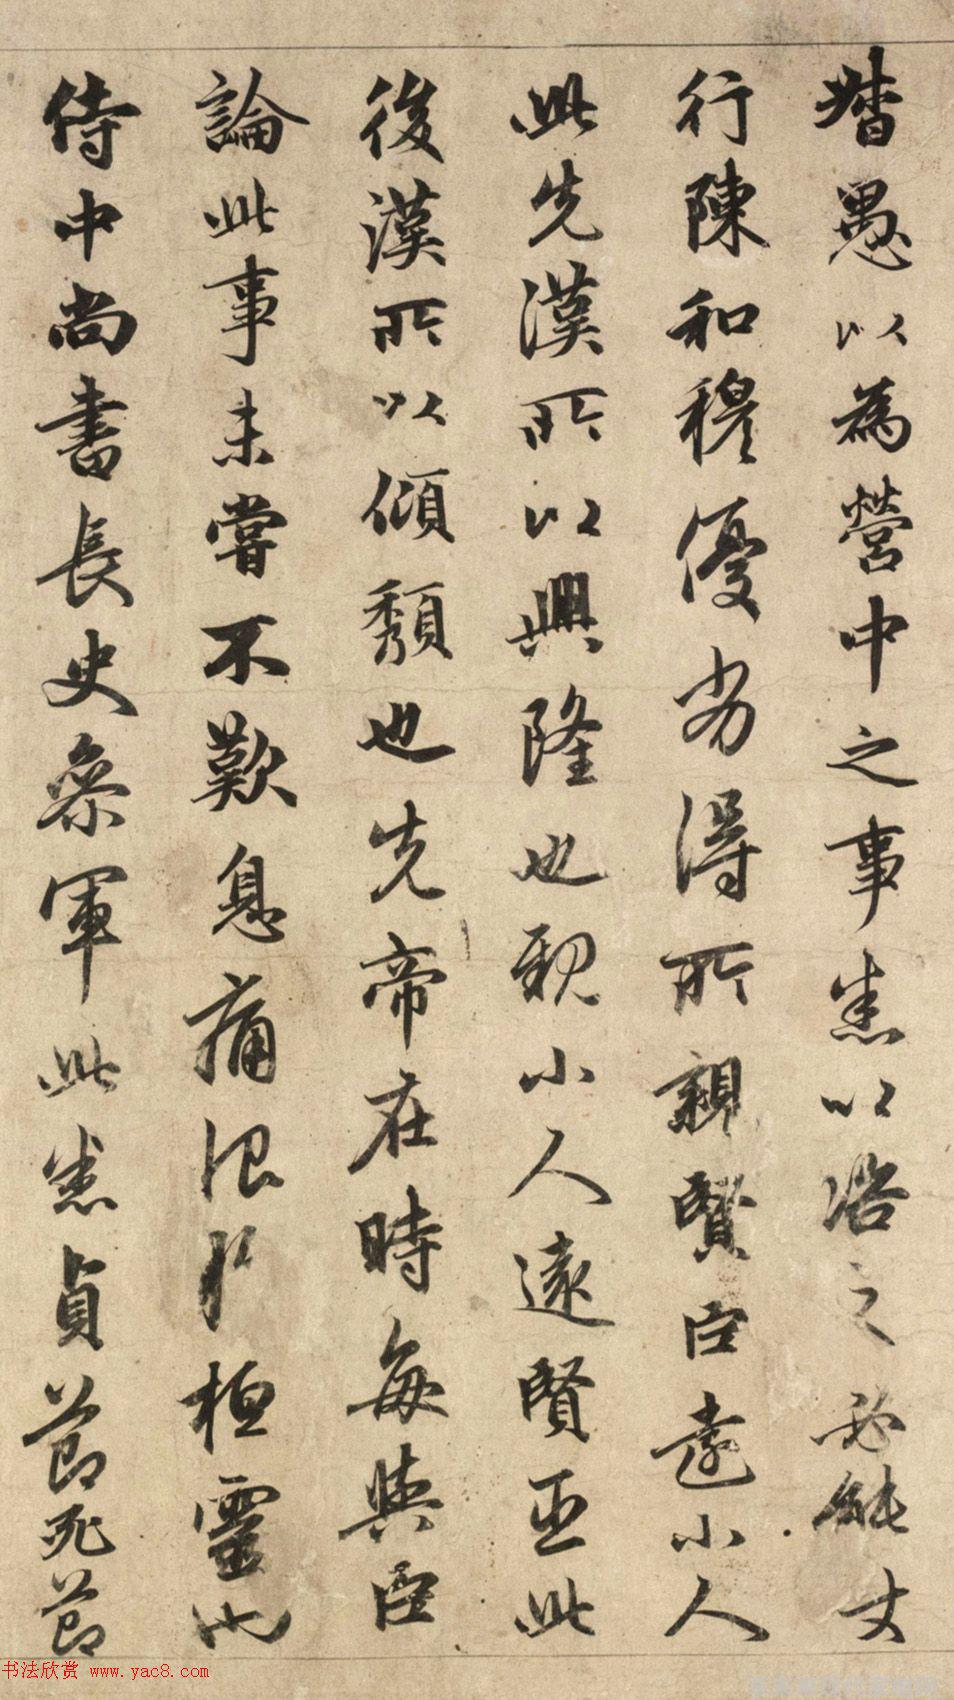 㬱愚以為營中之事悉以咨之必能丈
行陳和穆優劣得所親賢臣遠小人
此先漢所以興隆也親小人遠賢臣此
後漢所以傾頹也先帝在時每與臣
論此事未嘗不歎息痛恨於桓靈也
侍中尚書長史參軍此悉貞節死節
书法欣赏 www.yac8.com